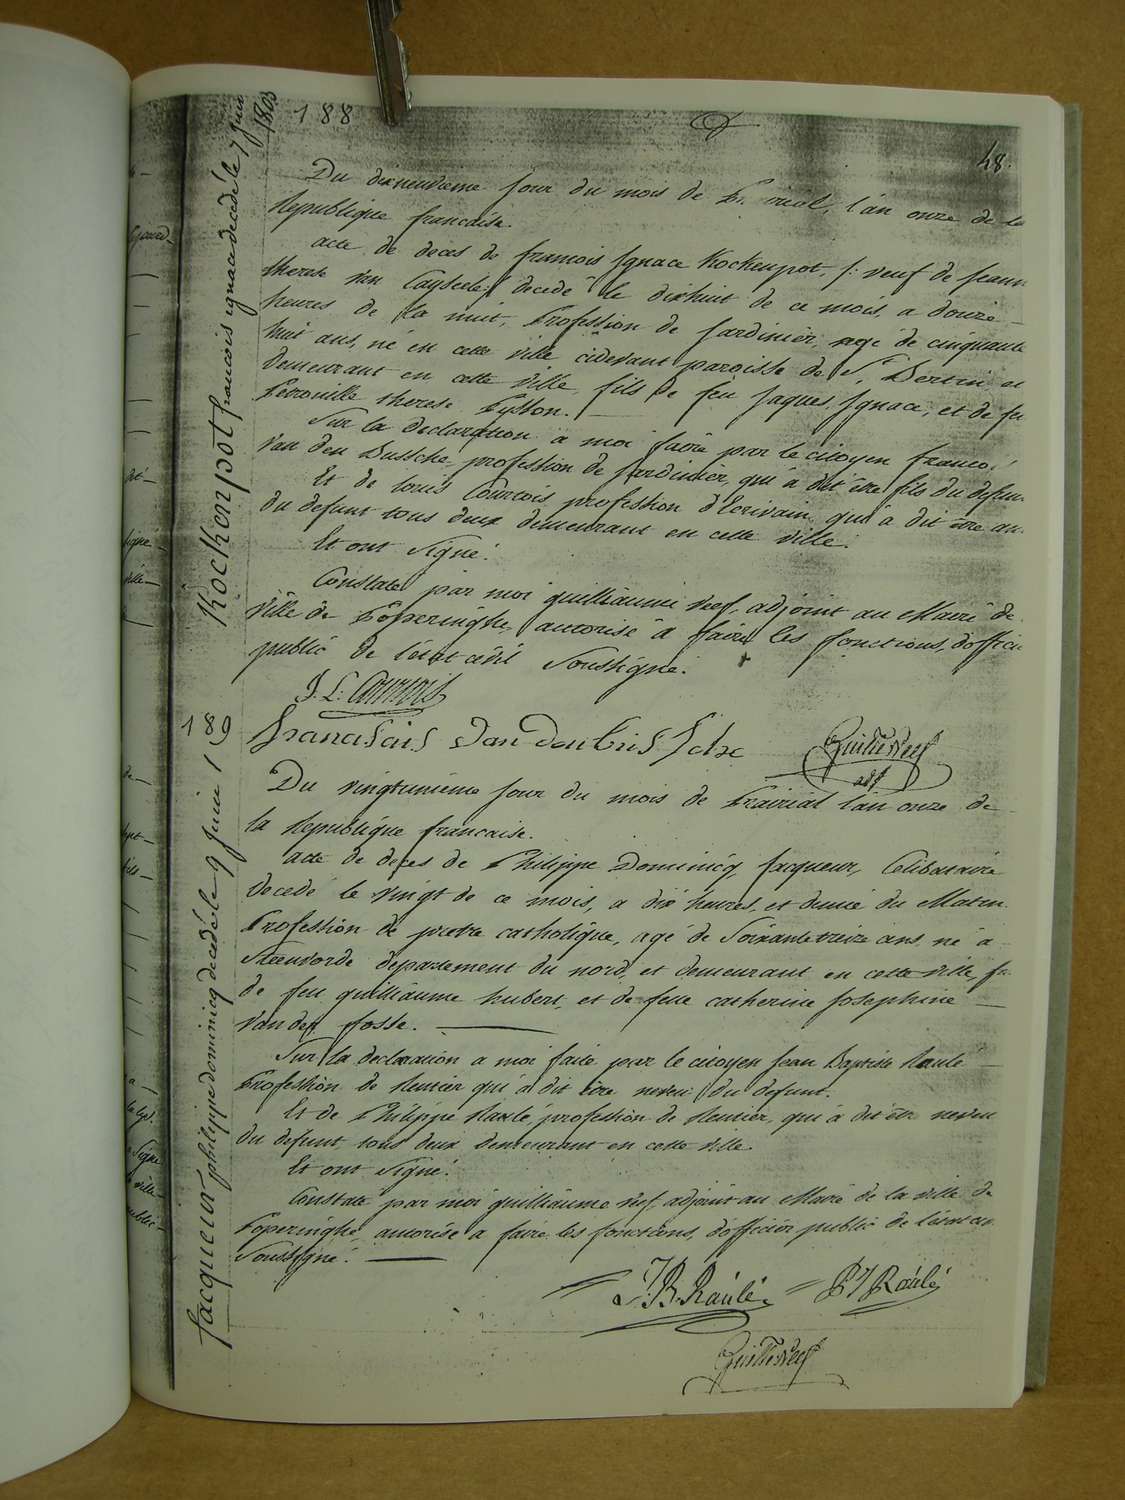 188
48.
Kockenpot francois ignace decedé le 7 juin 1803
Du dixneuvieme jour du mois de Prairial, l'an onze de la
Republique francaise.
acte de deces de francois Ignace Kockenpot, /: veuf de Jeann
therese Van Cayseele:/ decedé le dixhuit de ce mois, a douze
heures de la nuit, Profession de Jardinier, agé de cinquante
huit ans, né en cette ville cidevant paroisse de St. Bertin et
demeurant en cette ville, fils de feu Jaques Ignace, et de feu
Petronille therese Tysson.
Sur la declaration a moi faite par le citoyen franco.
Van den Bussche, profession de Jardinier, qui a dit être fils du defun
Et de louis Courtois profession d'Ecrivain qui a dit être am
du defunt tous deux demeurant en cette ville.
Et ont signé.
Constaté par moi guilliaume Neef, adjoint au Maire de
ville de Poperinghe, autorisé a faire les fonctions d'officie
public de l'état civil Soussigné.
J. L. Courtois
Fransois Van den
Guill Neef
adj
189
Jacqueur philippe dominicq decedé le 9 juin 1
Du vingtunieme jour du mois de Prairial l'an onze de
la Republique francaise.
acte de deces de Philippe Dominicq Jacqueur, Celibataire
decedé le vingt de ce mois, a dix heures, et demie du Matin
Profession de pretre catholique, agé de Soixantetreize ans, né a
Steenvorde departement du nord, et demeurant en cette ville, fi
de feu guilliaume hubert, et de feue catherine Josephine
Van der fosse.
Sur la declaration a moi faite par le citoyen Jean Baptiste Raule
Profession de Rentier qui a dit être neveu du defunt.
Et de Philippe Raule, profession de Rentier, qui a dit être neveu
du defunt, tous deux demeurant en cette ville.
Et ont signé.
Constaté par moi guilliaume Neef, adjoint au Maire de la ville de
Poperinghe, autorisé a faire les fonctions d'officier public de l'état civ
Soussigné.
J. B. Raulé
P J Raulé
Guill Neef